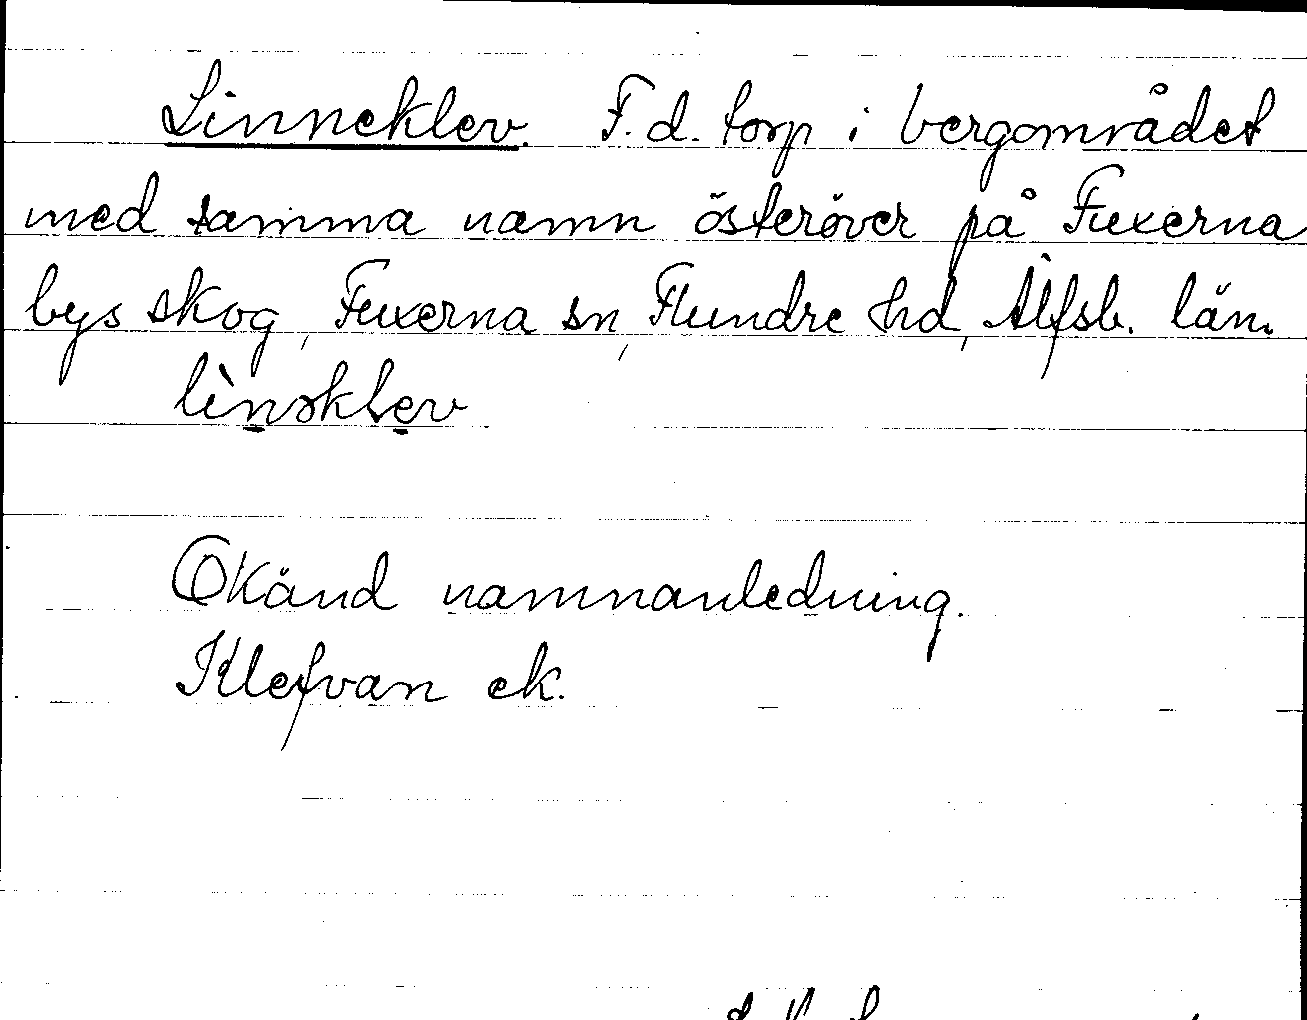 Linneklev. F.d. torp i bergområdet
med samma namn österöver på Fuxerna
bys skog, Fuxerna sn, Flundre hd, Älfsb. län.
lìnəklev
Okänd namnanledning.
Klefvan ek.